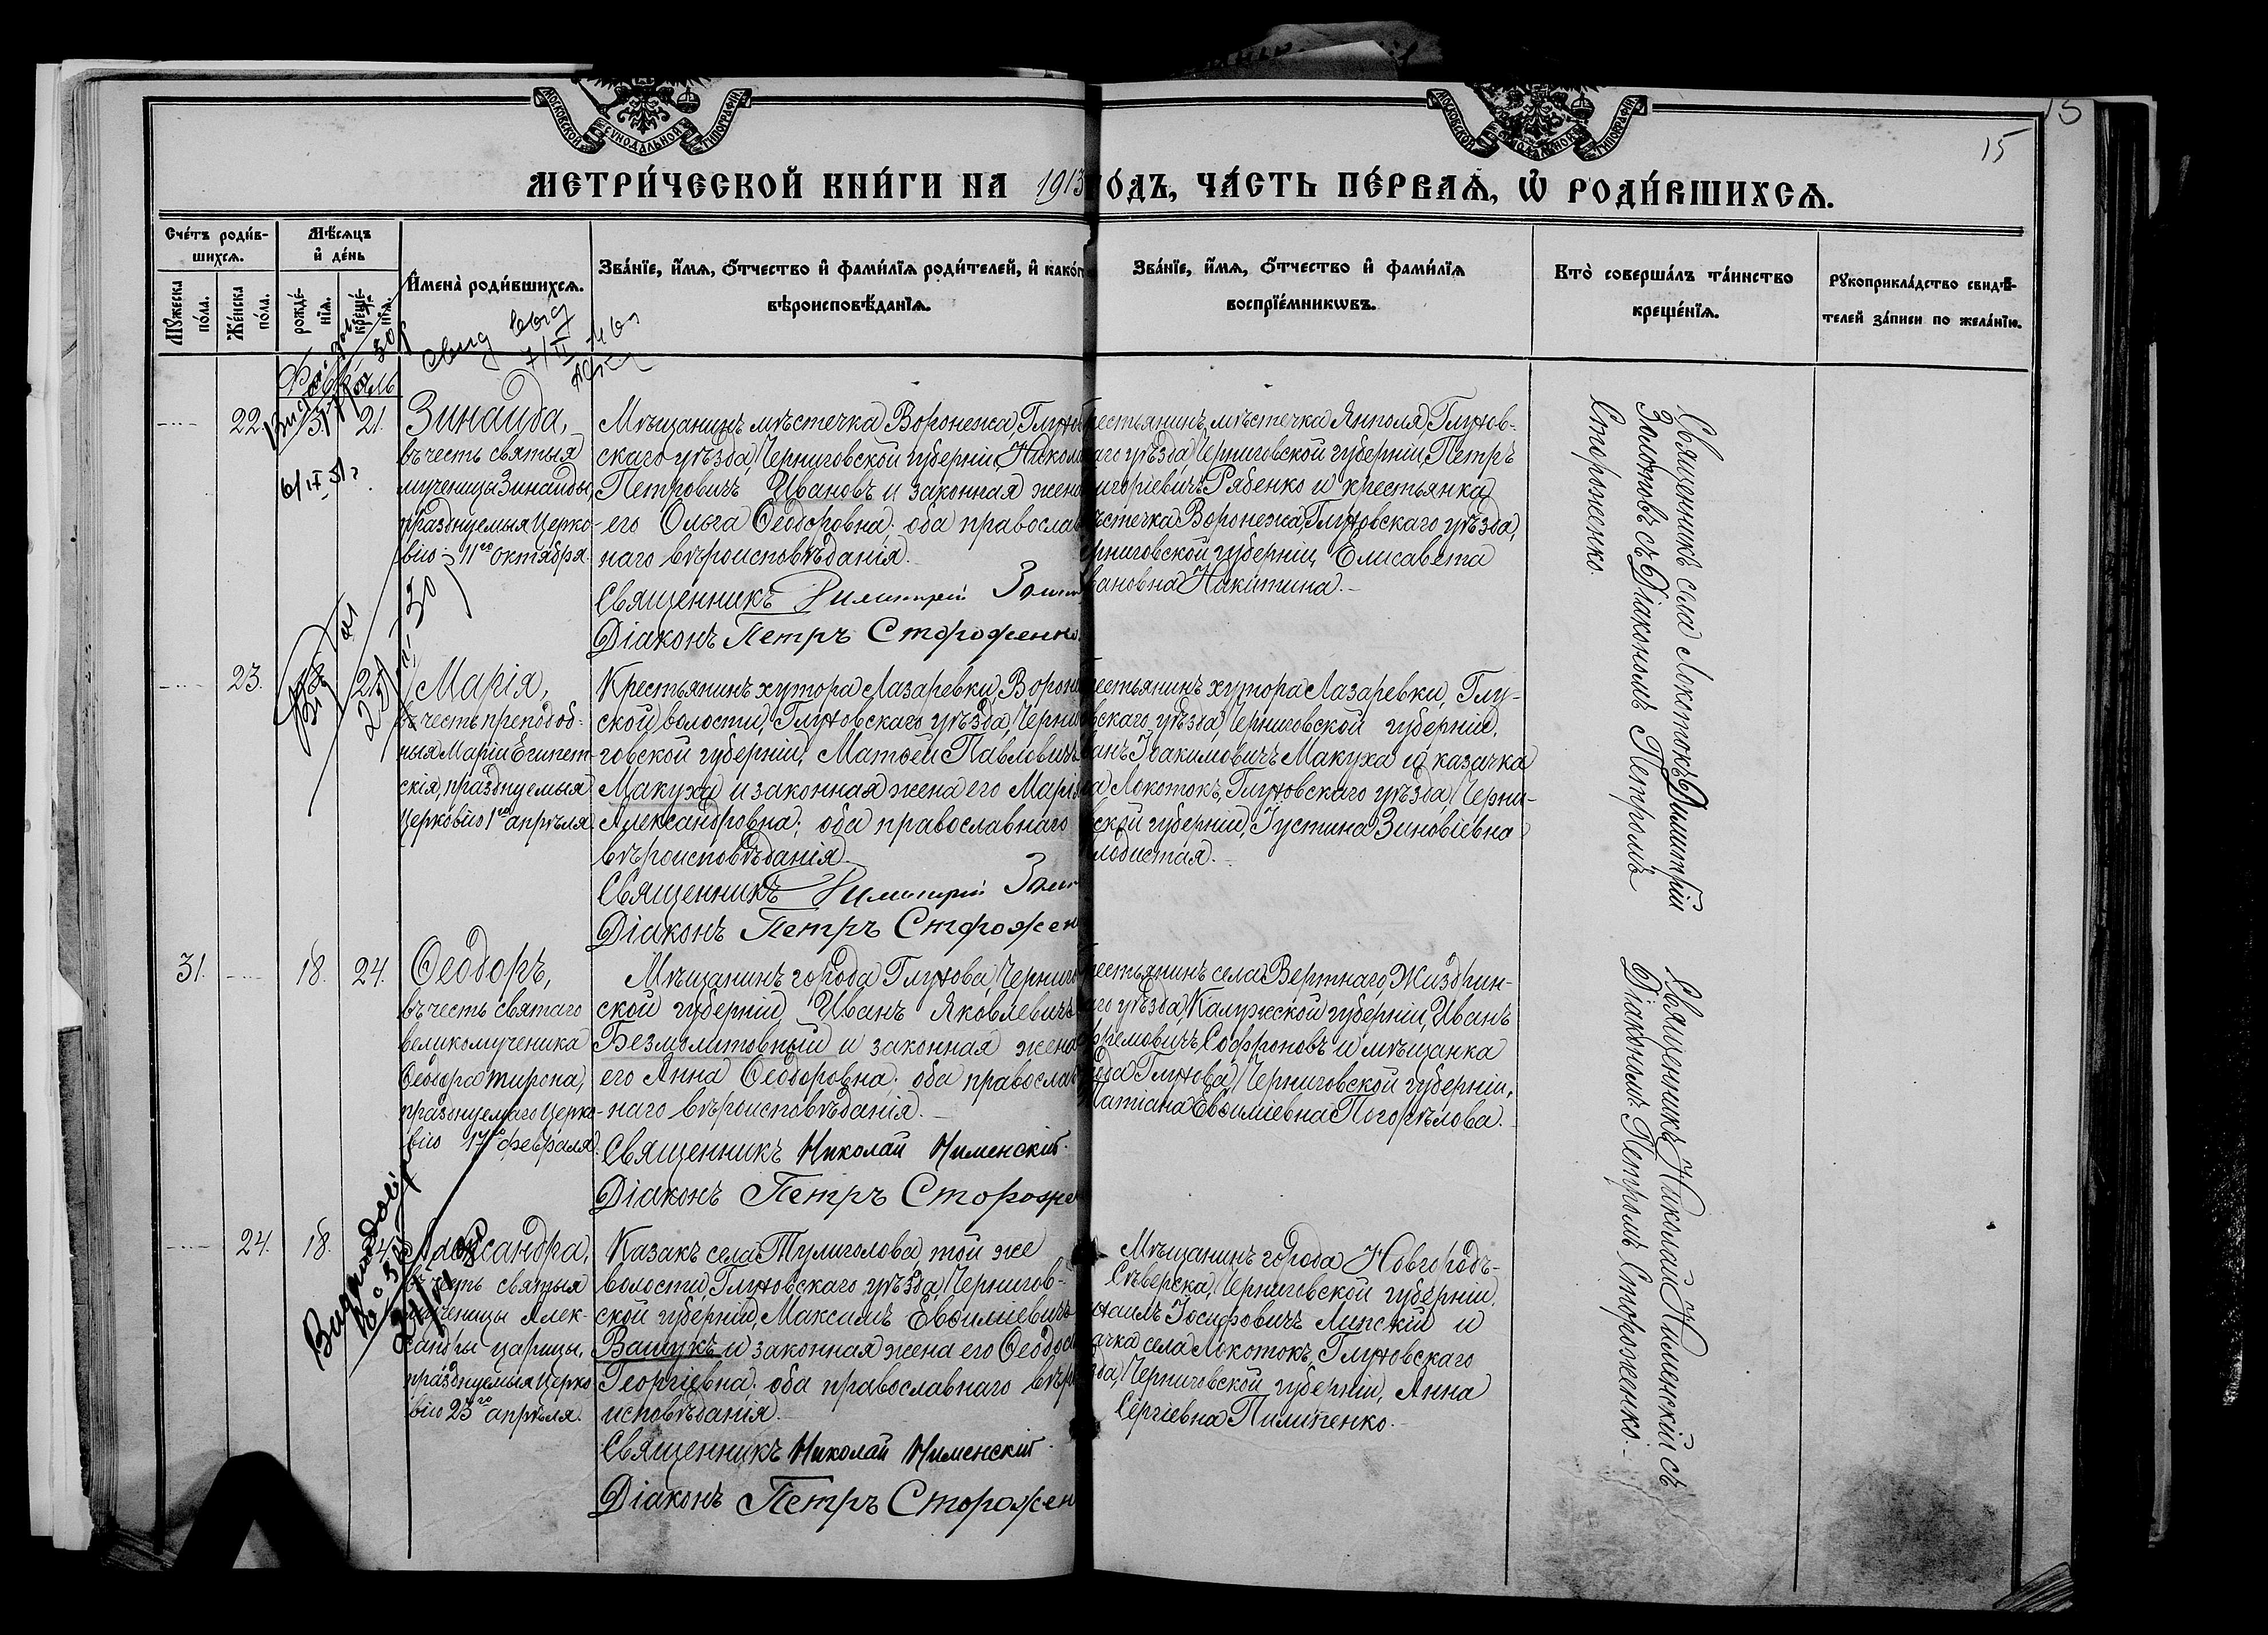 МОСКОВСКОЙ СѴНОДАЛЬНОЙ ТИПОГРАФІИ
МОСКОВСКОЙ СѴНОДАЛЬНОЙ ТИПОГРАФІИ
15
15
МЕТРИ́ЧЕСКОЙ КНИ́ГИ НА 1913
О́ДЪ, ЧА́СТЬ ПЕ́РВАѦ, Ѡ҆ РОДИ́ВШИХСѦ.
Сче́тъ роди́в-
шихсѧ.
Мꙋ́жеска
по́ла.
Же́нска
по́ла.
Мѣ́сѧцъ
и҆ де́нь
рожде́-
нїѧ.
креще́-
нїѧ.
И҆мена̀ роди́вшихсѧ.
Зва́нїе, и҆́мѧ, ѻ҆́тчество и҆ фами́лїѧ роди́телей, и҆ како́г
вѣроисповѣ́данїѧ.
Зва́нїе, и҆́мѧ, ѻ҆́тчество и҆ фами́лїѧ
воспрїе́мникѡвъ.
Кто̀ соверша́лъ та́инство
креще́нїѧ.
Рꙋкоприкла́дство свидѣ́-
телей за́писи по жела́нїю.
Февраль
22. 21.
6/IX 51г
Зинаида,
въ честь святыя
мученицы Зинаиды,
празднуемыя Церко-
вію 11го октября.
Мѣщанинъ мѣстечка Воронежа, Глухов
скаго уѣзда, Черниговской губерніи, Никола
Петровичъ Ивановъ и законная жена
его Ольга Ѳеодоровна; оба православ
наго вѣроисповѣданія.
Священникъ Димитрій
Діаконъ Петръ Стороженко
рестьянинъ мѣстечка Янполя, Глухов-
аго уѣзда, Черниговской губерніи, Петръ
игоріевичъ Рябенко и крестьянка
ѣстечка Воронежа, Глуховскаго уѣзда,
ерниговской губерніи, Елисавета
вановна Никитина.
Священникъ села Локотокъ Димитрій
Золотовъ съ Діакономъ Петромъ
Стороженко.
23. 21.
Марія,
въ честь преподоб-
ныя Маріи Египет-
скія, празднуемыя
Церковію 1го апрѣля.
Крестьянинъ хутора Лазаревки, Ворон
ской волости, Глуховскаго уѣзда, Черни
говской губерніи, Матѳей Павловичъ
Макуха и законная жена его Марія
Александровна; оба православнаго
вѣроисповѣданія.
Священникъ Димитрій
Діаконъ Петръ Сторожен
рестьянинъ хутора Лазаревки, Глу-
вскаго уѣзда, Черниговской губерніи,
ванъ Іоакимовичъ Макуха и казачка
ла Локотокъ, Глуховскаго уѣзда, Черни-
вской губерніи, Іустина Зиновіевна
лобистая.
31. 18. 24.
Ѳеодоръ,
въ честь святаго
великомученика
Ѳеодора Тирона,
празднуемаго Церко-
вію 17го февраля.
Мѣщанинъ города Глухова, Чернигов
ской губерніи, Иванъ Яковлевичъ
Безмолитовный и законная жена
его Анна Ѳеодоровна; оба православ
наго вѣроисповѣданія.
Священникъ Николай Нименскій.
Діаконъ Петръ Стороже
рестьянинъ села Вертнаго, Жиздрин-
аго уѣзда, Калужской губерніи, Иванъ
фремовичъ Софроновъ и мѣщанка
рода Глухова, Черниговской губерніи,
Татіана Евѳиміевна Погорѣлова.
Священникъ Николай Нименскій съ
Діакономъ Петромъ Стороженко.
24. 18. 24.
Александра,
въ честь святыя
мученицы Алек-
сандры царицы,
празднуемыя Церко
вію 23го апрѣля.
Казакъ села Тулиголова, той же
волости, Глуховскаго уѣзда, Чернигов-
ской губерніи, Максимъ Евѳиміевичъ
Вашукъ и законная жена его Ѳеодос
Георгіевна; оба православнаго вѣро
исповѣданія.
Священникъ Николай Нименскій.
Діаконъ Петръ Сторожен
Мѣщанинъ города Новгородъ-
Сѣверска, Черниговской губерніи,
ихаилъ Іосифовичъ Липскій и
зачка села Локотокъ, Глуховскаго
зда, Черниговской губерніи, Анна
Сергіевна Пилипенко.